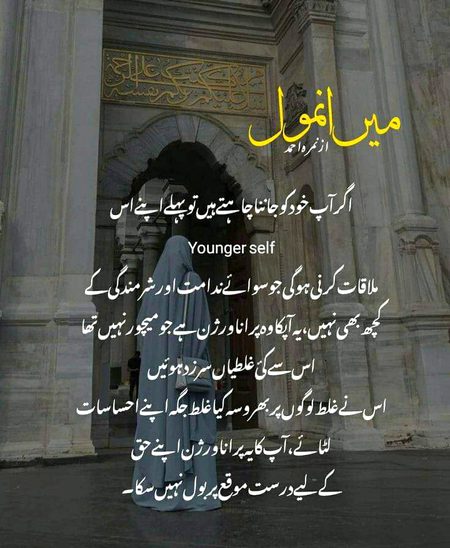 میں انمول
از نمرہ احمد
اگر آپ خود کو جاننا چاہتے ہیں تو پہلے اپنے اس
Younger self
ملاقات کرنی ہوگی جو سوائے ندامت اور شرمندگی کے
کچھ بھی نہیں، یہ آپکا وہ پرانا ورژن ہے جو میچور نہیں تھا
اس سے کئی غلطیاں سرزد ہوئیں
اس نے غلط لوگوں پر بھروسہ کیا غلط جگہ اپنے احساسات
لٹائے، آپ کا یہ پرانا ورژن اپنے حق
کے لیے درست موقع پر بول نہیں سکا۔